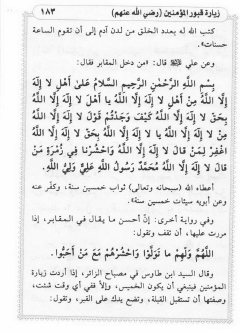 زيارة قبور المؤمنين (رضي الله عنهم) ١٨٣
كتب الله له بعدد الخلق من لدن آدم إلى أن تقوم الساعة
حسنات».
وعن علي قال: «من دخل المقابر فقال:
بِسْمِ اللَّهِ الرَّحْمٰنِ الرَّحِيمِ السَّلَامُ عَلَىٰ أَهْلِ لَا إِلٰهَ
إِلَّا اللَّهُ مِنْ أَهْلِ لَا إِلٰهَ إِلَّا اللَّهُ يَا أَهْلَ لَا إِلٰهَ إِلَّا اللَّهُ
بِحَقِّ لَا إِلٰهَ إِلَّا اللَّهُ كَيْفَ وَجَدْتُمْ قَوْلَ لَا إِلٰهَ إِلَّا اللَّهُ
مِنْ لَا إِلٰهَ إِلَّا اللَّهُ يَا لَا إِلٰهَ إِلَّا اللَّهُ بِحَقِّ لَا إِلٰهَ إِلَّا اللَّهُ
اغْفِرْ لِمَنْ قَالَ لَا إِلٰهَ إِلَّا اللَّهُ وَاحْشُرْنَا فِي زُمْرَةِ مَنْ
قَالَ لَا إِلٰهَ إِلَّا اللَّهُ مُحَمَّدٌ رَسُولُ اللَّهِ عَلِيٌّ وَلِيُّ اللَّهِ.
أعطاه الله (سبحانه وتعالى) ثواب خمسين سنة، وكفّر عنه
وعن أبويه سيئات خمسين سنة».
وفي رواية أخرى: إنّ أحسن ما يقال في المقابر، إذا
مررت عليها، أن تقف وتقول:
اللَّهُمَّ وَلِّهِمْ مَا تَوَلَّوْا وَاحْشُرْهُمْ مَعَ مَنْ أَحَبُّوا.
وقال السيد ابن طاوس في مصباح الزائر: إذا أردت زيارة
المؤمنين فينبغي أن يكون الخميس، وإلاّ ففي أي وقت شئت،
وصفتها أن تستقبل القبلة، وتضع يدك على القبر، وتقول: